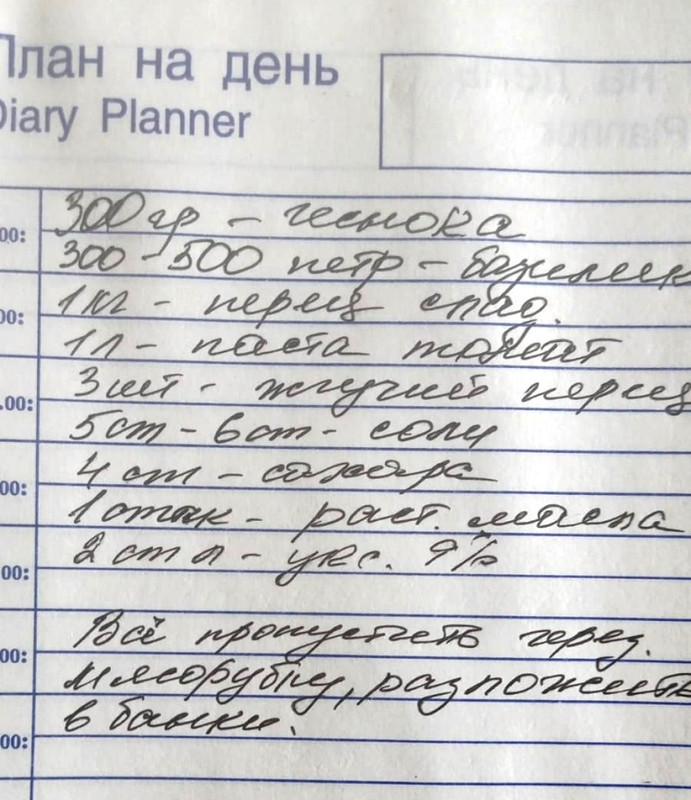 План на день
Diary Planner
00:
300 гр - чеснока
300 - 500 петр - базилик
00:
1 кг - перец слад.
1 л - паста томат
.00:
3 шт - жгучий перец
5 ст - 6 ст - соли
00:
4 ст - сахара
1 стак - раст. масла
00:
2 ст л - укс. 9%
00:
Всё пропустить через.
мясорубку, разложить
00:
в банки.